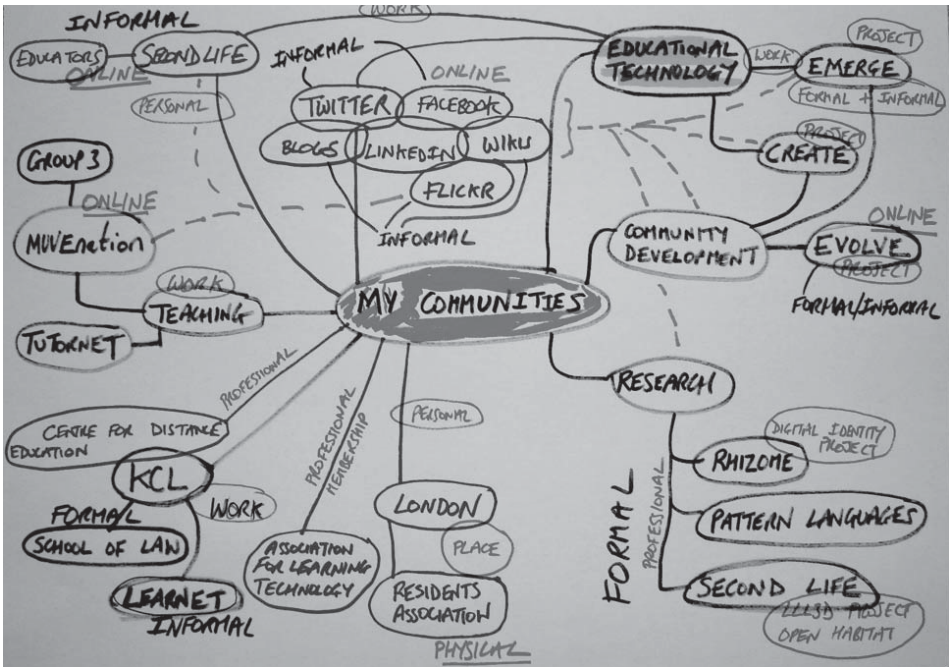 INFORMAL
WORK
EDUCATORS
ONLINE
SECOND LIFE
PERSONAL
INFORMAL
ONLINE
TWITTER
FACEBOOK
BLOGS
LINKEDIN
WIKIS
FLICKR
INFORMAL
EDUCATIONAL
TECHNOLOGY
WORK
PROJECT
EMERGE
FORMAL + INFORMAL
PROJECT
CREATE
GROUP 3
ONLINE
MUVEnation
WORK
TEACHING
TUTORNET
MY COMMUNITIES
COMMUNITY
DEVELOPMENT
ONLINE
EVOLVE
PROJECT
FORMAL/INFORMAL
PROFESSIONAL
CENTRE FOR DISTANCE
EDUCATION
KCL
WORK
FORMAL
SCHOOL OF LAW
LEARNET
INFORMAL
PROFESSIONAL
MEMBERSHIP
ASSOCIATION
FOR LEARNING
TECHNOLOGY
PERSONAL
LONDON
PLACE
RESIDENTS
ASSOCIATION
PHYSICAL
RESEARCH
FORMAL
PROFESSIONAL
DIGITAL IDENTITY
PROJECT
RHIZOME
PATTERN LANGUAGES
SECOND LIFE
LLL3D PROJECT
OPEN HABITAT